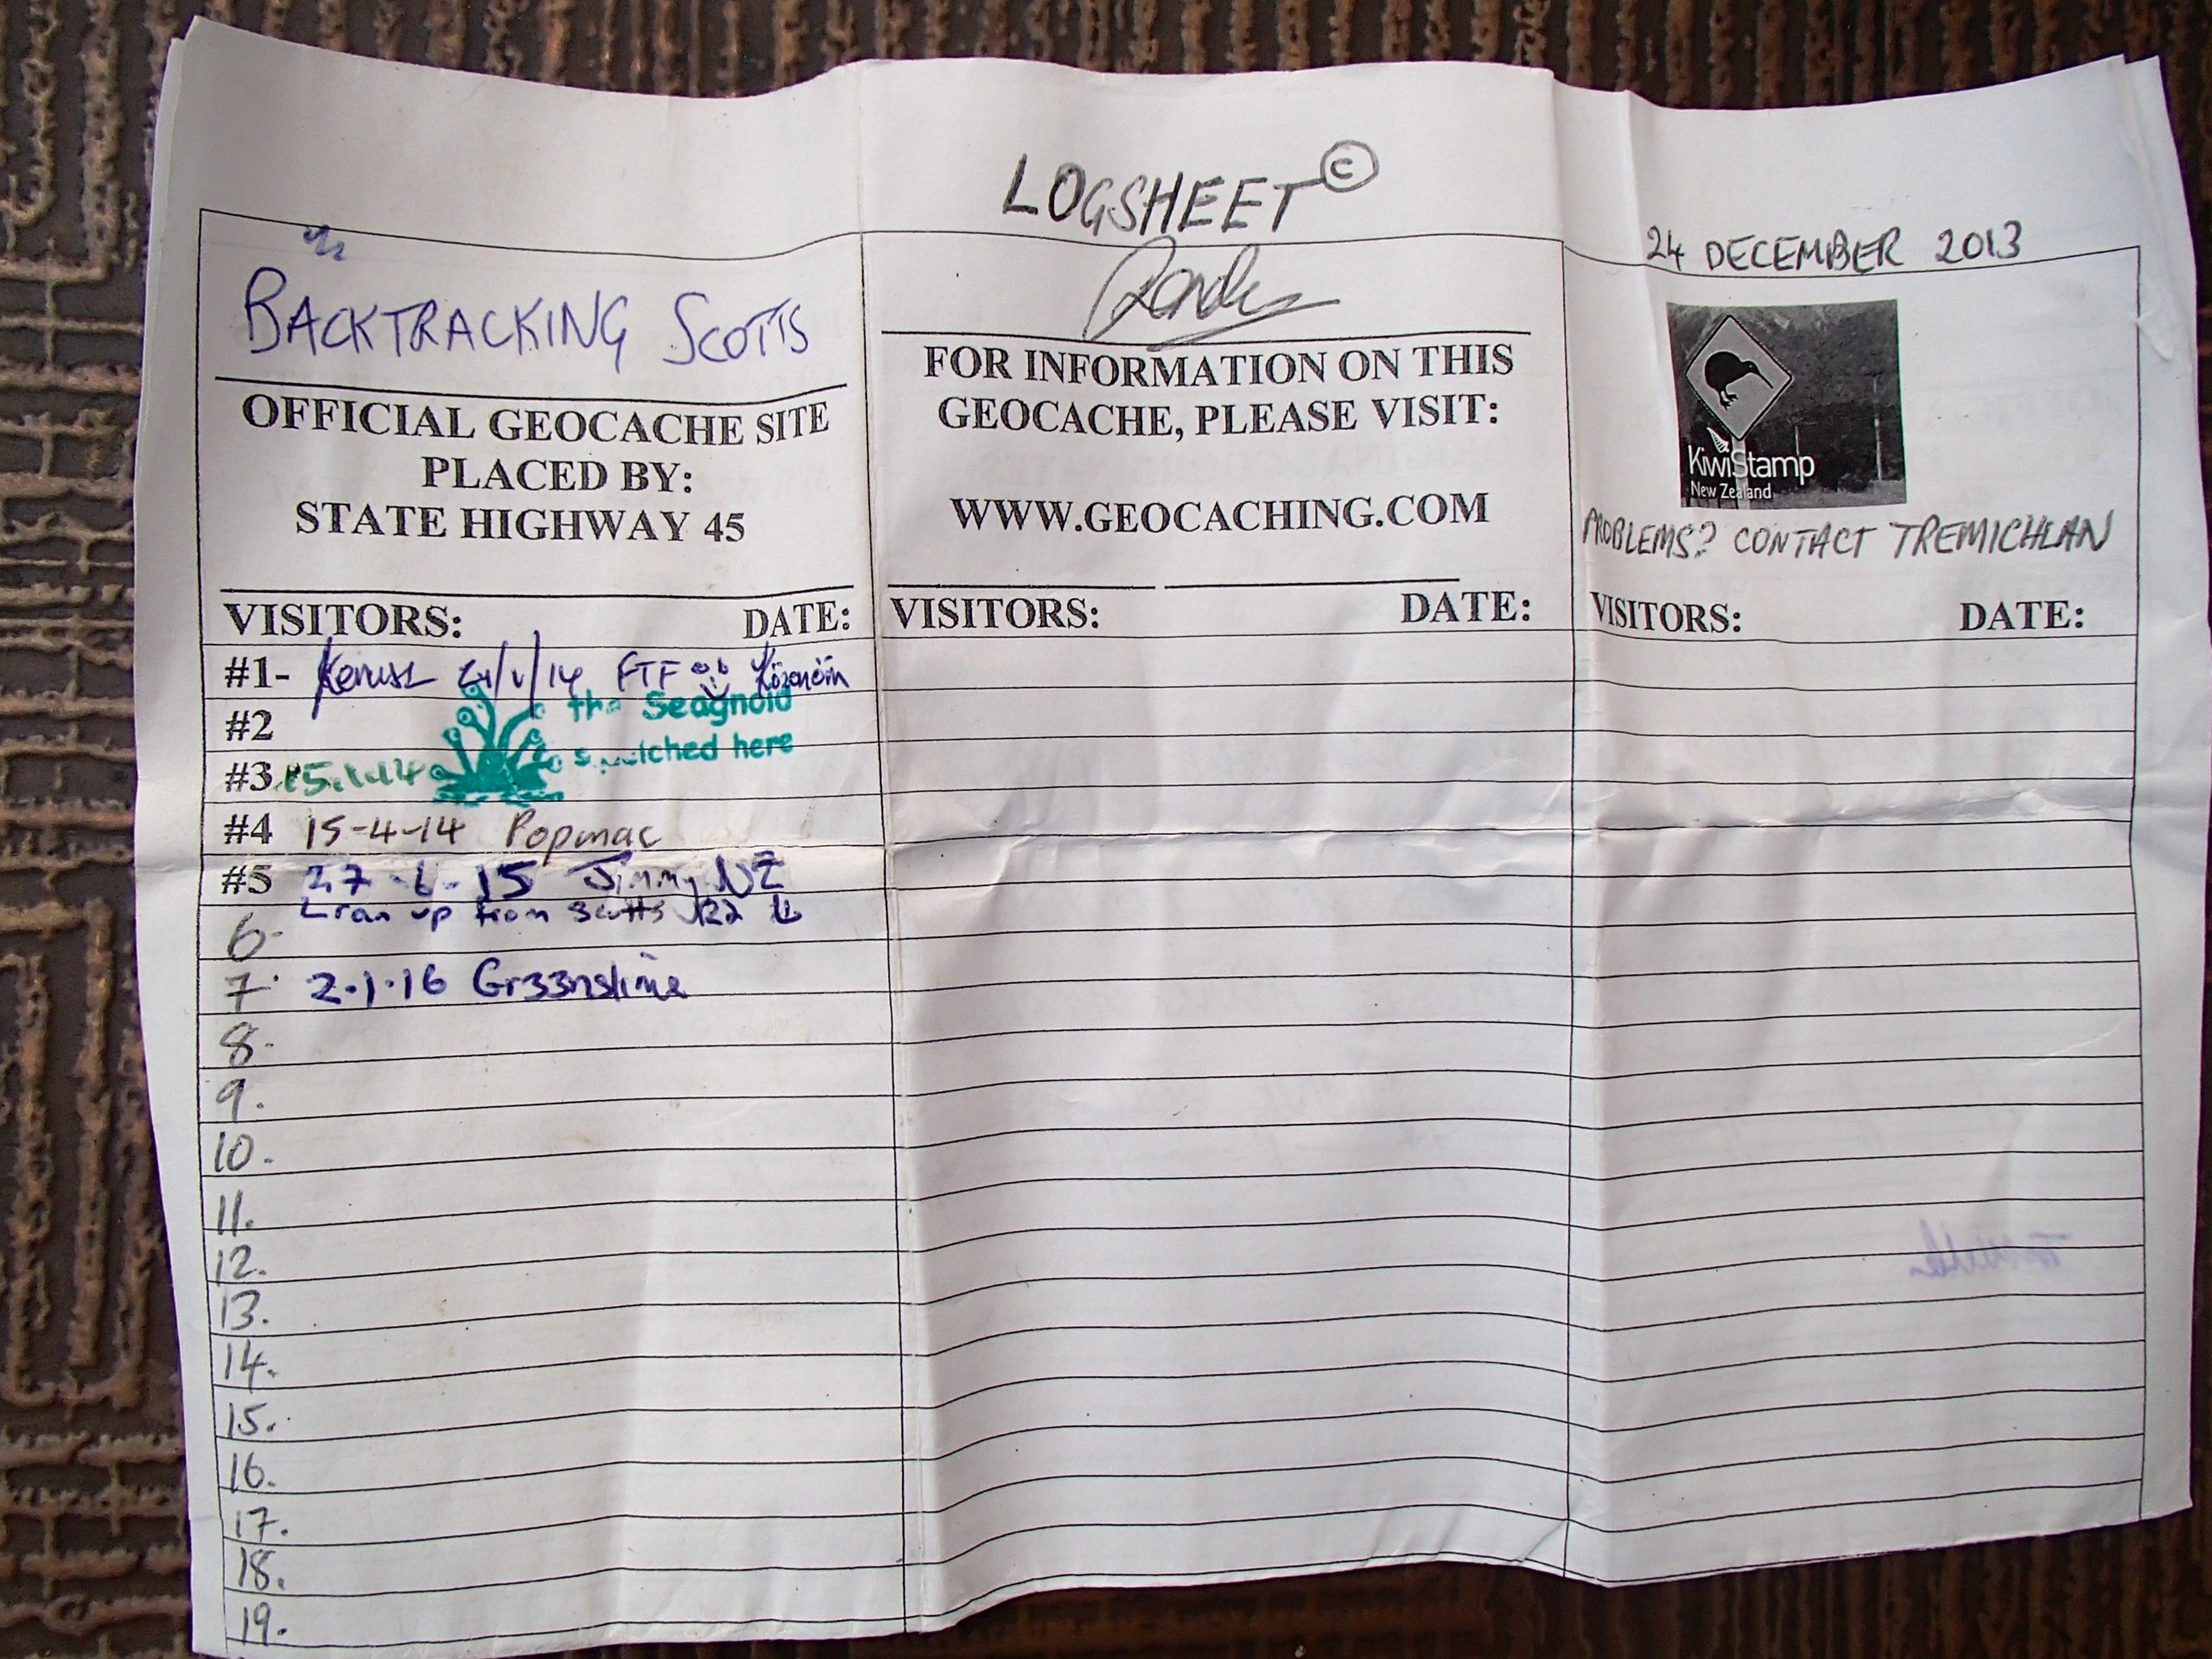 LOGSHEET ©
24 DECEMBER 2013
BACKTRACKING SCOTTS
OFFICIAL GEOCACHE SITE
PLACED BY:
STATE HIGHWAY 45
FOR INFORMATION ON THIS
GEOCACHE, PLEASE VISIT:
WWW.GEOCACHING.COM
KiwiStamp
New Zealand
PROBLEMS? CONTACT TREMICHLAN
VISITORS: DATE:
VISITORS: DATE:
VISITORS: DATE:
#1- /14 FTF
#2 the Seagnoid
here
#3 15.1.14
#4 15-4-14 Popmac
#5 27-6-15 Jimmy NZ
6- I ran up from Scotts
7. 2.1.16 Gr33nslime
8.
9.
10.
11.
12.
13.
14.
15.
16.
17.
18.
19.